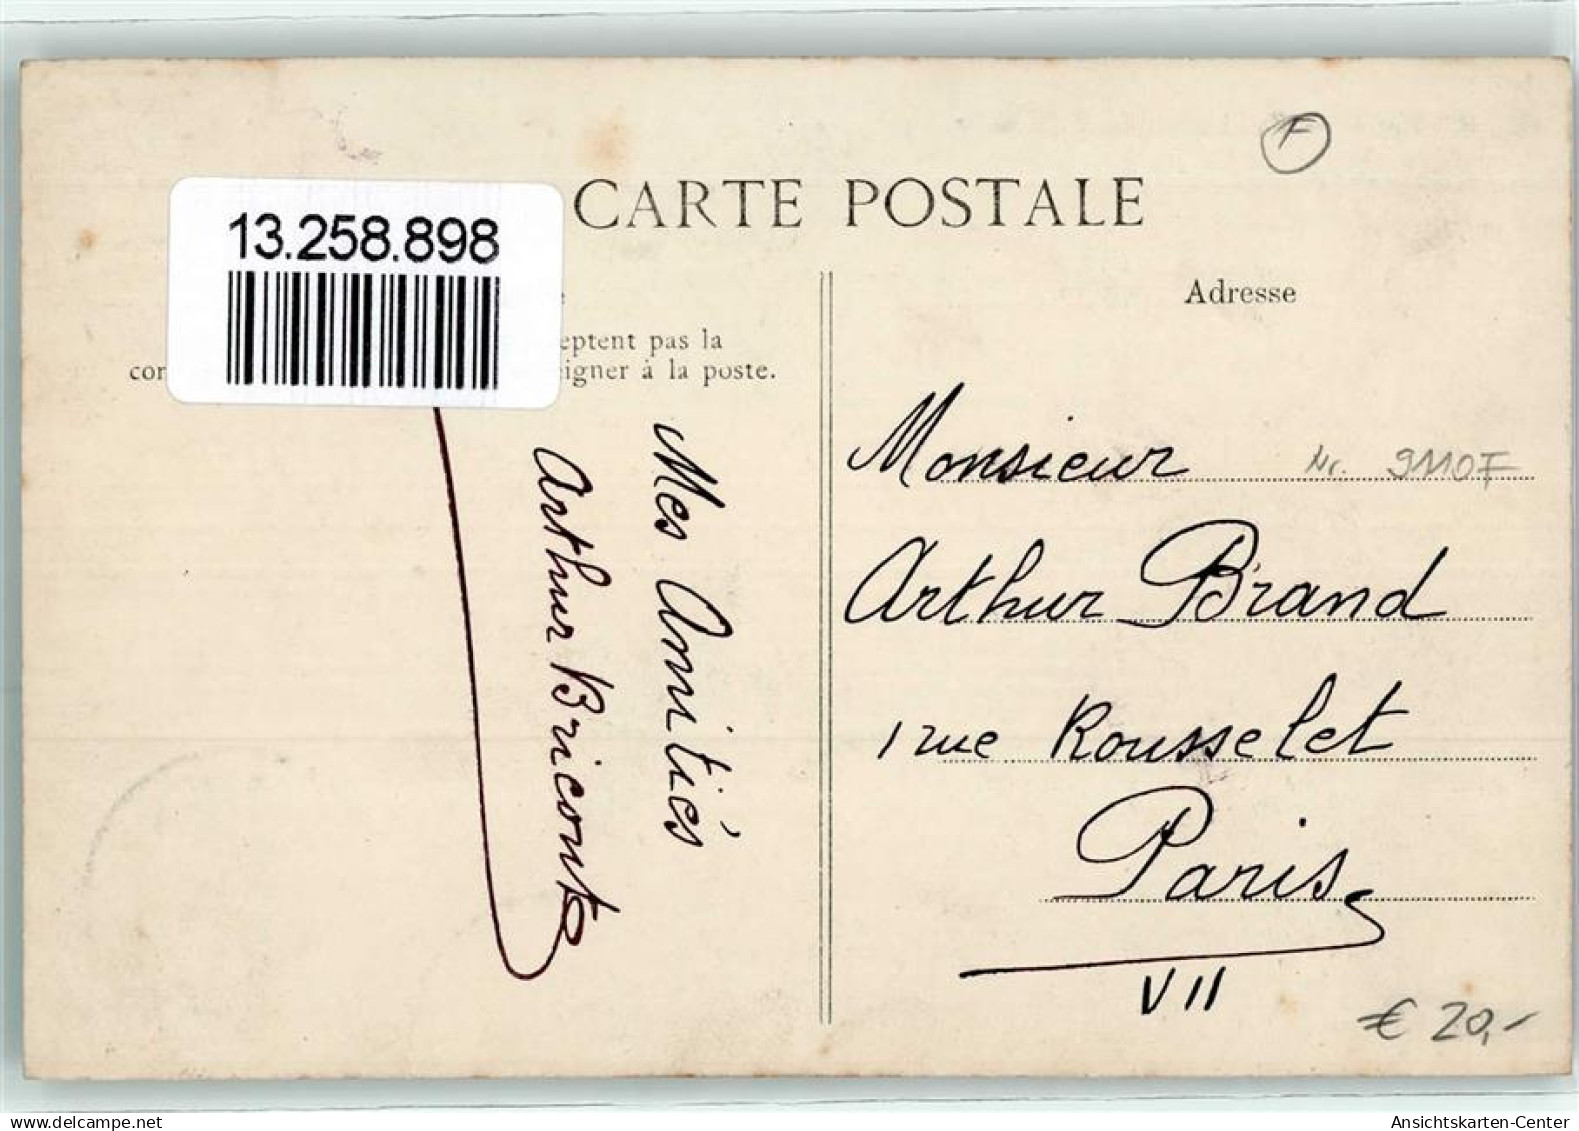 F
CARTE POSTALE
13.258.898
Adresse
eptent pas la
cor eigner à la poste.
Mes Amitiés
Arthur Bricout
Monsieur Nr. 9110F
Arthur Brand
1 rue Rousselet
Paris
VII
€ 20,-
www.delcampe.net
Ansichtskarten-Center